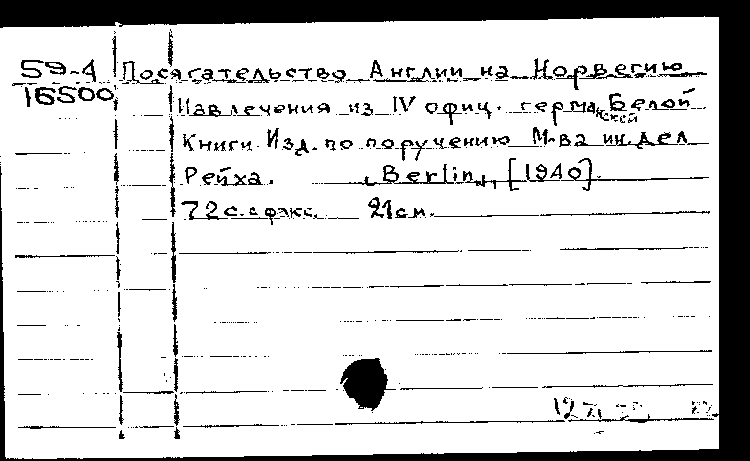 59-4 Посягательство Англии на Норвегию
16500
Извлечения из IV офиц. германской Белой
Книги. Изд. по поручению М-ва ин. дел
Рейха. „Berlin", [1940].
72 с. с факс. 21 см.